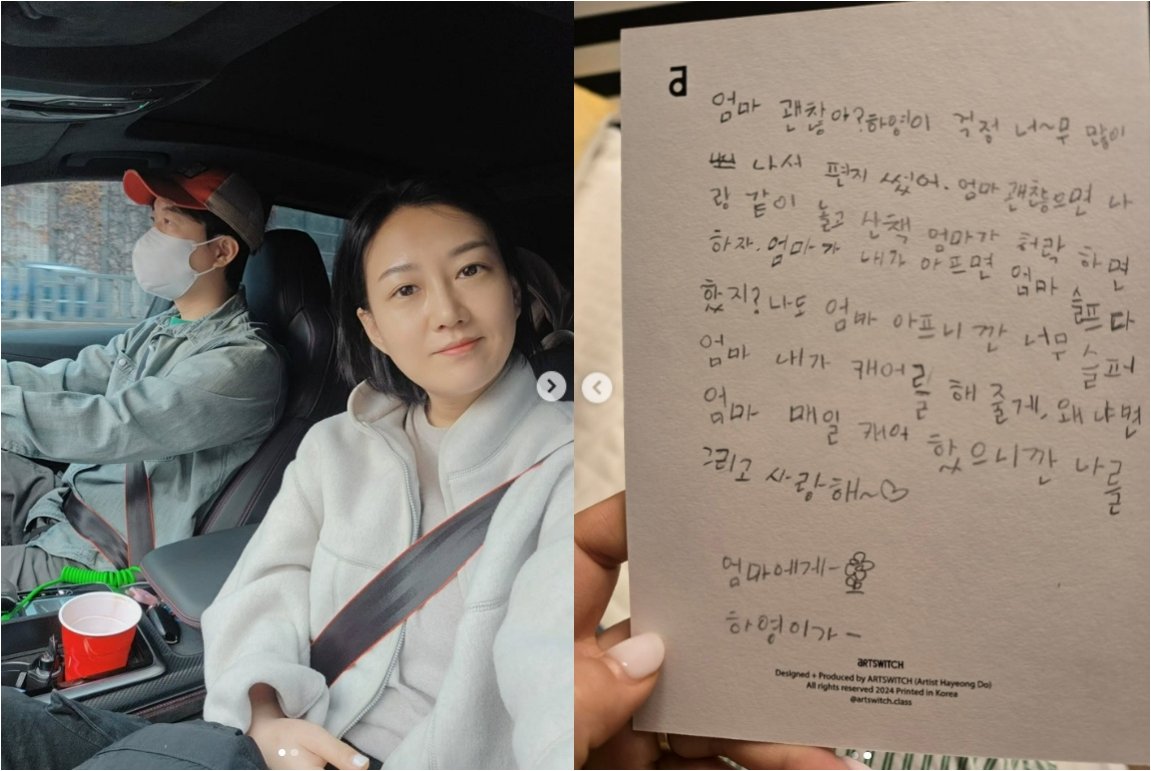 a
엄마 괜찮아? 하영이 걱정 너~무 많이
나서 편지 썼어. 엄마 괜찮으면 나
랑 같이 놀고 산책 엄마가 허락 하면
하자. 엄마가 내가 아프면 엄마 슬프다
했지? 나도 엄마 아프니깐 너무 슬퍼
엄마 내가 캐어를 해 줄게, 왜냐면
엄마 매일 캐어 했으니깐 나를
그리고 사랑해~♡
엄마에게-
하영이가-
aRTSWITCH
Designed + Produced by ARTSWITCH (Artist Hayeong Do)
All rights reserved 2024 Printed in Korea
@artswitch.class